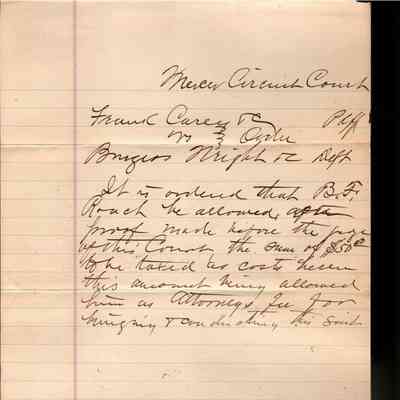 Mercer Circuit Court
Frank Carey &c Plff
vs } Order
Burgess Wright &c Deft
It is ordered that B.F.
Roach be allowed, after
proof made before the judge
of this Court the sum of $50 00
to be taxed as costs herein
this amount being allowed
him as Attorneys fee for
bringing & conducting this suit